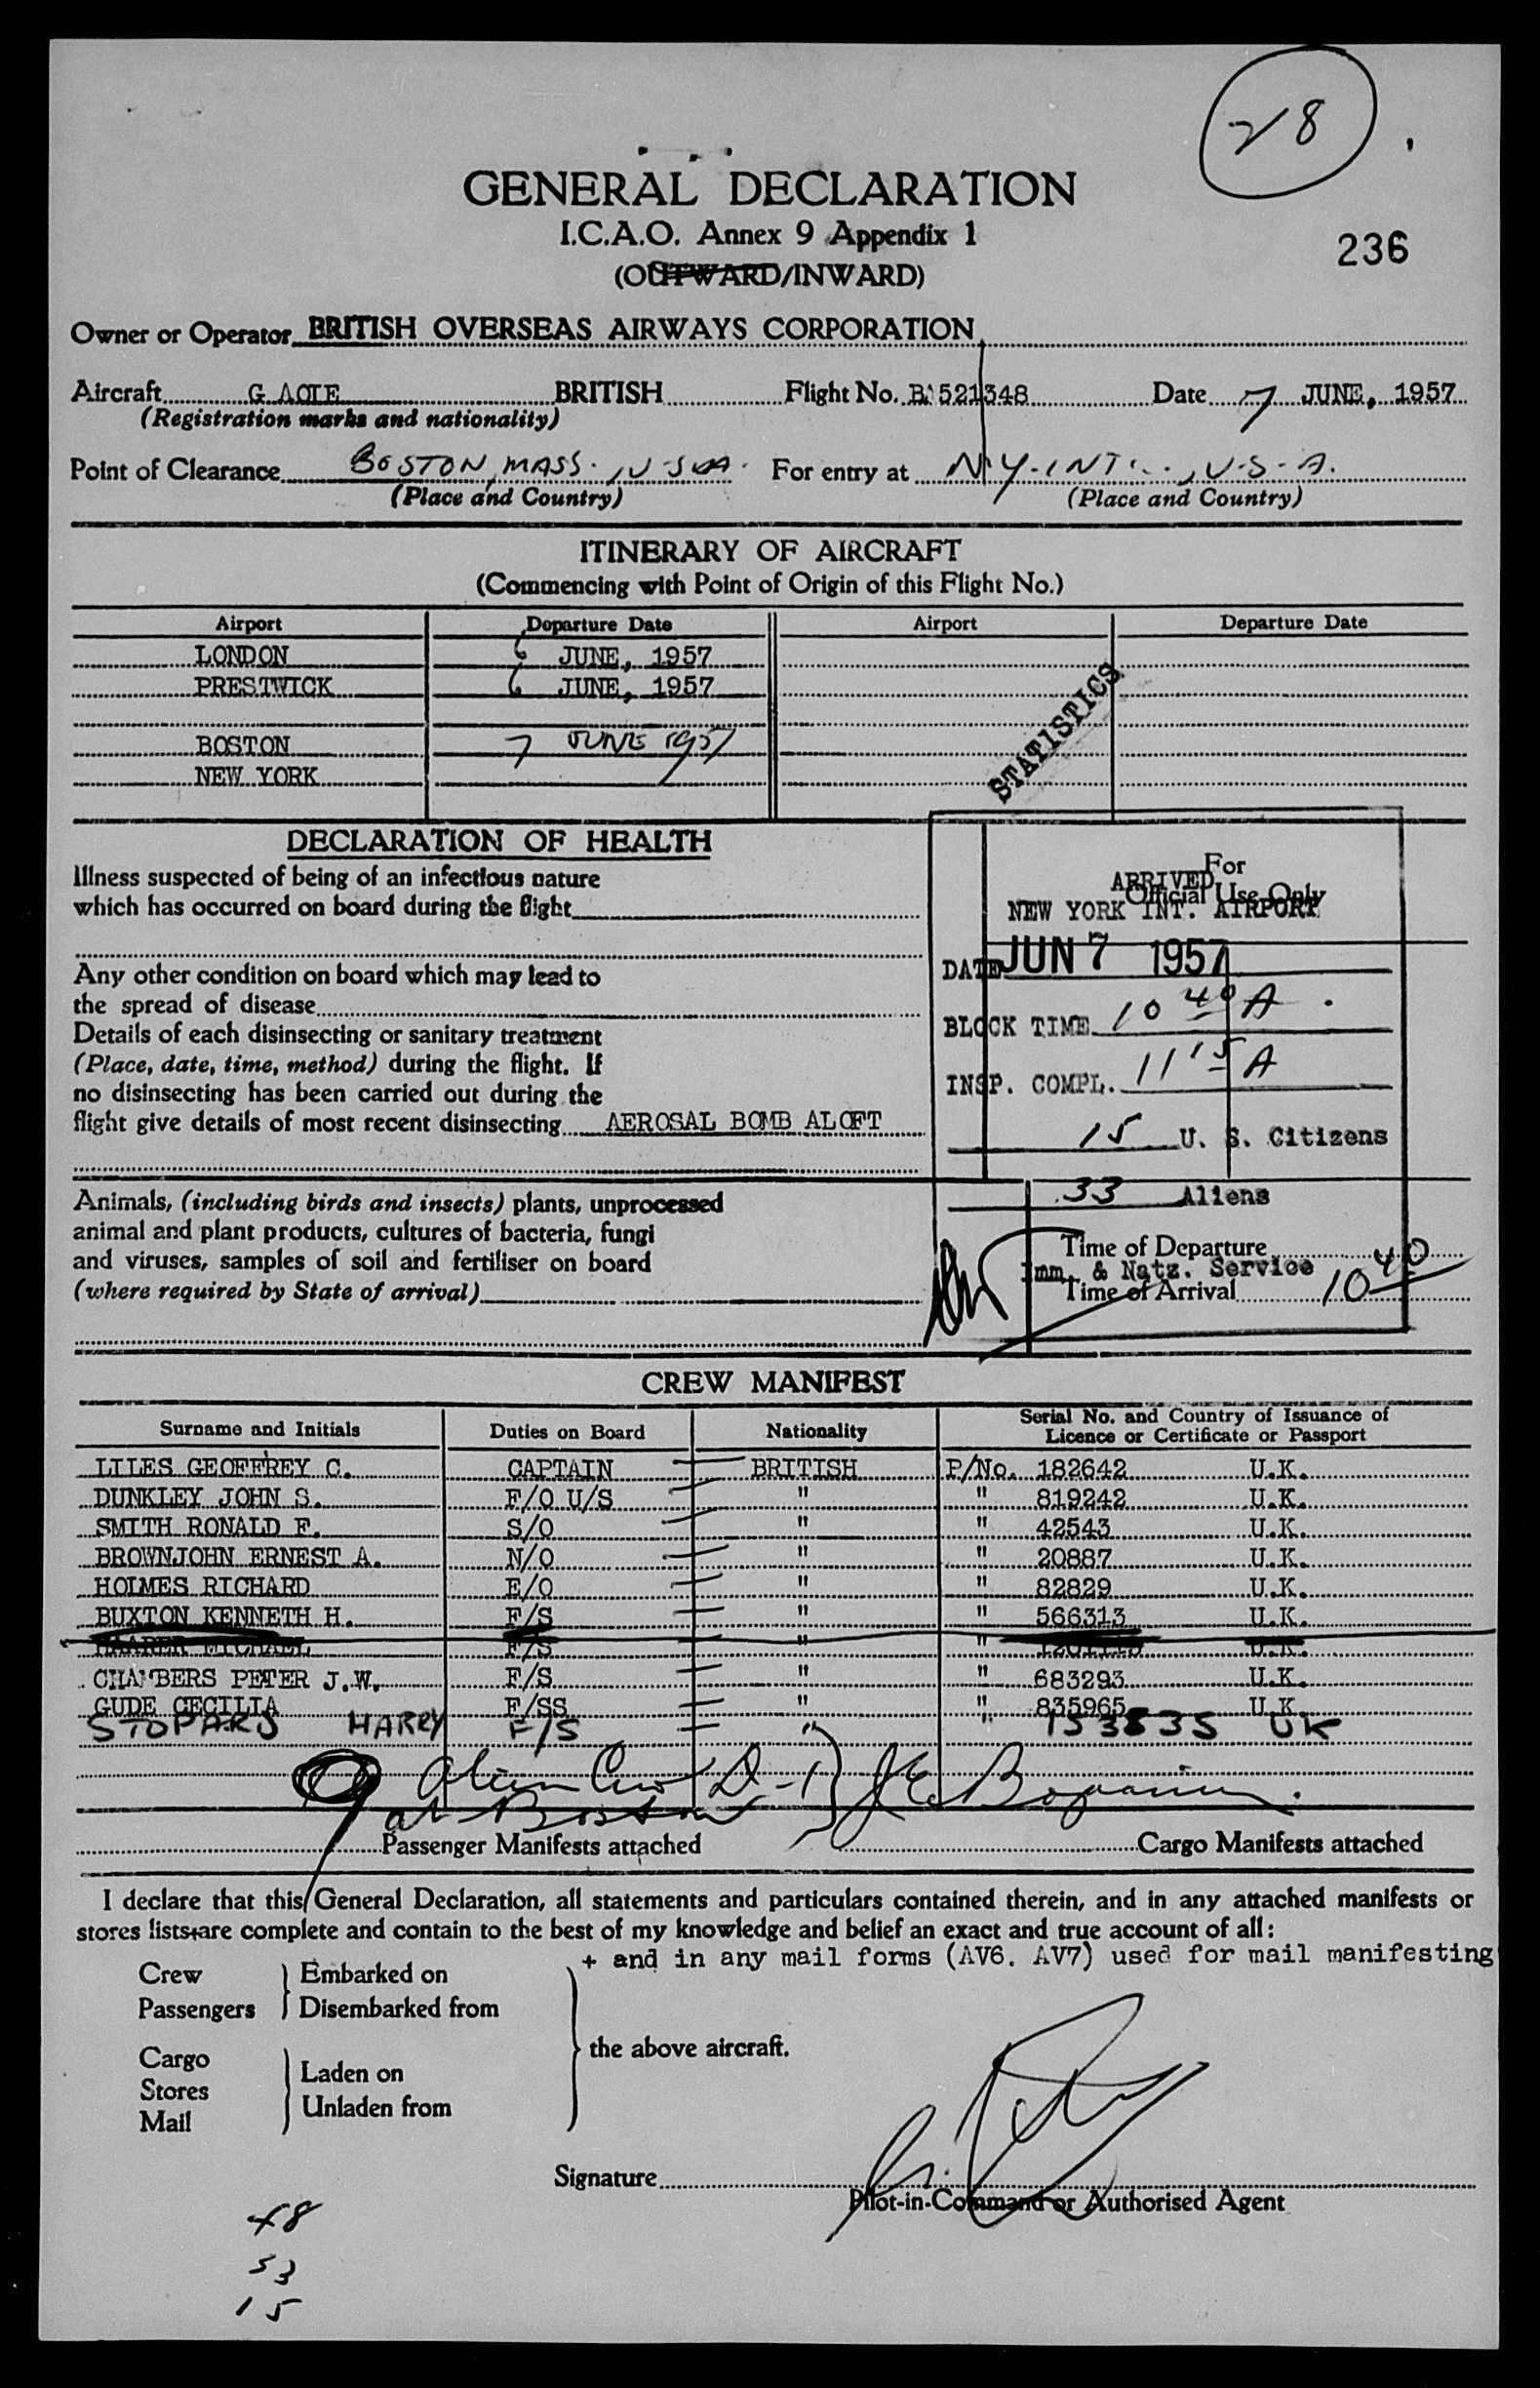 28
GENERAL DECLARATION
I.C.A.O. Annex 9 Appendix 1
236
(OUTWARD/INWARD)
Owner or Operator BRITISH OVERSEAS AIRWAYS CORPORATION
Aircraft G AOIE BRITISH Flight No. BA521348 Date 7 JUNE, 1957
(Registration marks and nationality)
Point of Clearance BOSTON, MASS., U.S.A. For entry at N.Y. INT., U.S.A.
(Place and Country) (Place and Country)
ITINERARY OF AIRCRAFT
(Commencing with Point of Origin of this Flight No.)
Airport Departure Date Airport Departure Date
LONDON 6 JUNE, 1957
PRESTWICK 6 JUNE, 1957
BOSTON 7 JUNE 1957
NEW YORK
STATISTICS
DECLARATION OF HEALTH
Illness suspected of being of an infectious nature
which has occurred on board during the flight
Any other condition on board which may lead to
the spread of disease
Details of each disinsecting or sanitary treatment
(Place, date, time, method) during the flight. If
no disinsecting has been carried out during the
flight give details of most recent disinsecting AEROSAL BOMB ALOFT
Animals, (including birds and insects) plants, unprocessed
animal and plant products, cultures of bacteria, fungi
and viruses, samples of soil and fertiliser on board
(where required by State of arrival)
For
Official Use Only
ARRIVED
NEW YORK INT. AIRPORT
DATE JUN 7 1957
BLOCK TIME 10 40 A
INSP. COMPL. 11 15 A
15 U. S. Citizens
33 Aliens
Time of Departure
Imm. & Natz. Service
Time of Arrival 10 40
CREW MANIFEST
Surname and Initials Duties on Board Nationality Serial No. and Country of Issuance of
Licence or Certificate or Passport
LILES GEOFFREY C. CAPTAIN BRITISH P/No. 182642 U.K.
DUNKLEY JOHN S. F/O U/S " " 819242 U.K.
SMITH RONALD F. S/O " " 42543 U.K.
BROWNJOHN ERNEST A. N/O " " 20887 U.K.
HOLMES RICHARD E/O " " 82829 U.K.
BUXTON KENNETH H. F/S " " 566313 U.K.
MICHAEL F/S " " U.K.
CHAMBERS PETER J.W. F/S " " 683293 U.K.
GUDE CECILIA F/SS " " 835965 U.K.
STOPARD HARRY F/S " " 153835 UK
9 Alien Crew D-1
at Boston
Passenger Manifests attached Cargo Manifests attached
I declare that this General Declaration, all statements and particulars contained therein, and in any attached manifests or
stores lists+are complete and contain to the best of my knowledge and belief an exact and true account of all:
+ and in any mail forms (AV6. AV7) used for mail manifesting
Crew Embarked on
Passengers Disembarked from
the above aircraft.
Cargo Laden on
Stores
Mail Unladen from
Signature
Pilot-in-Command or Authorised Agent
48
33
15